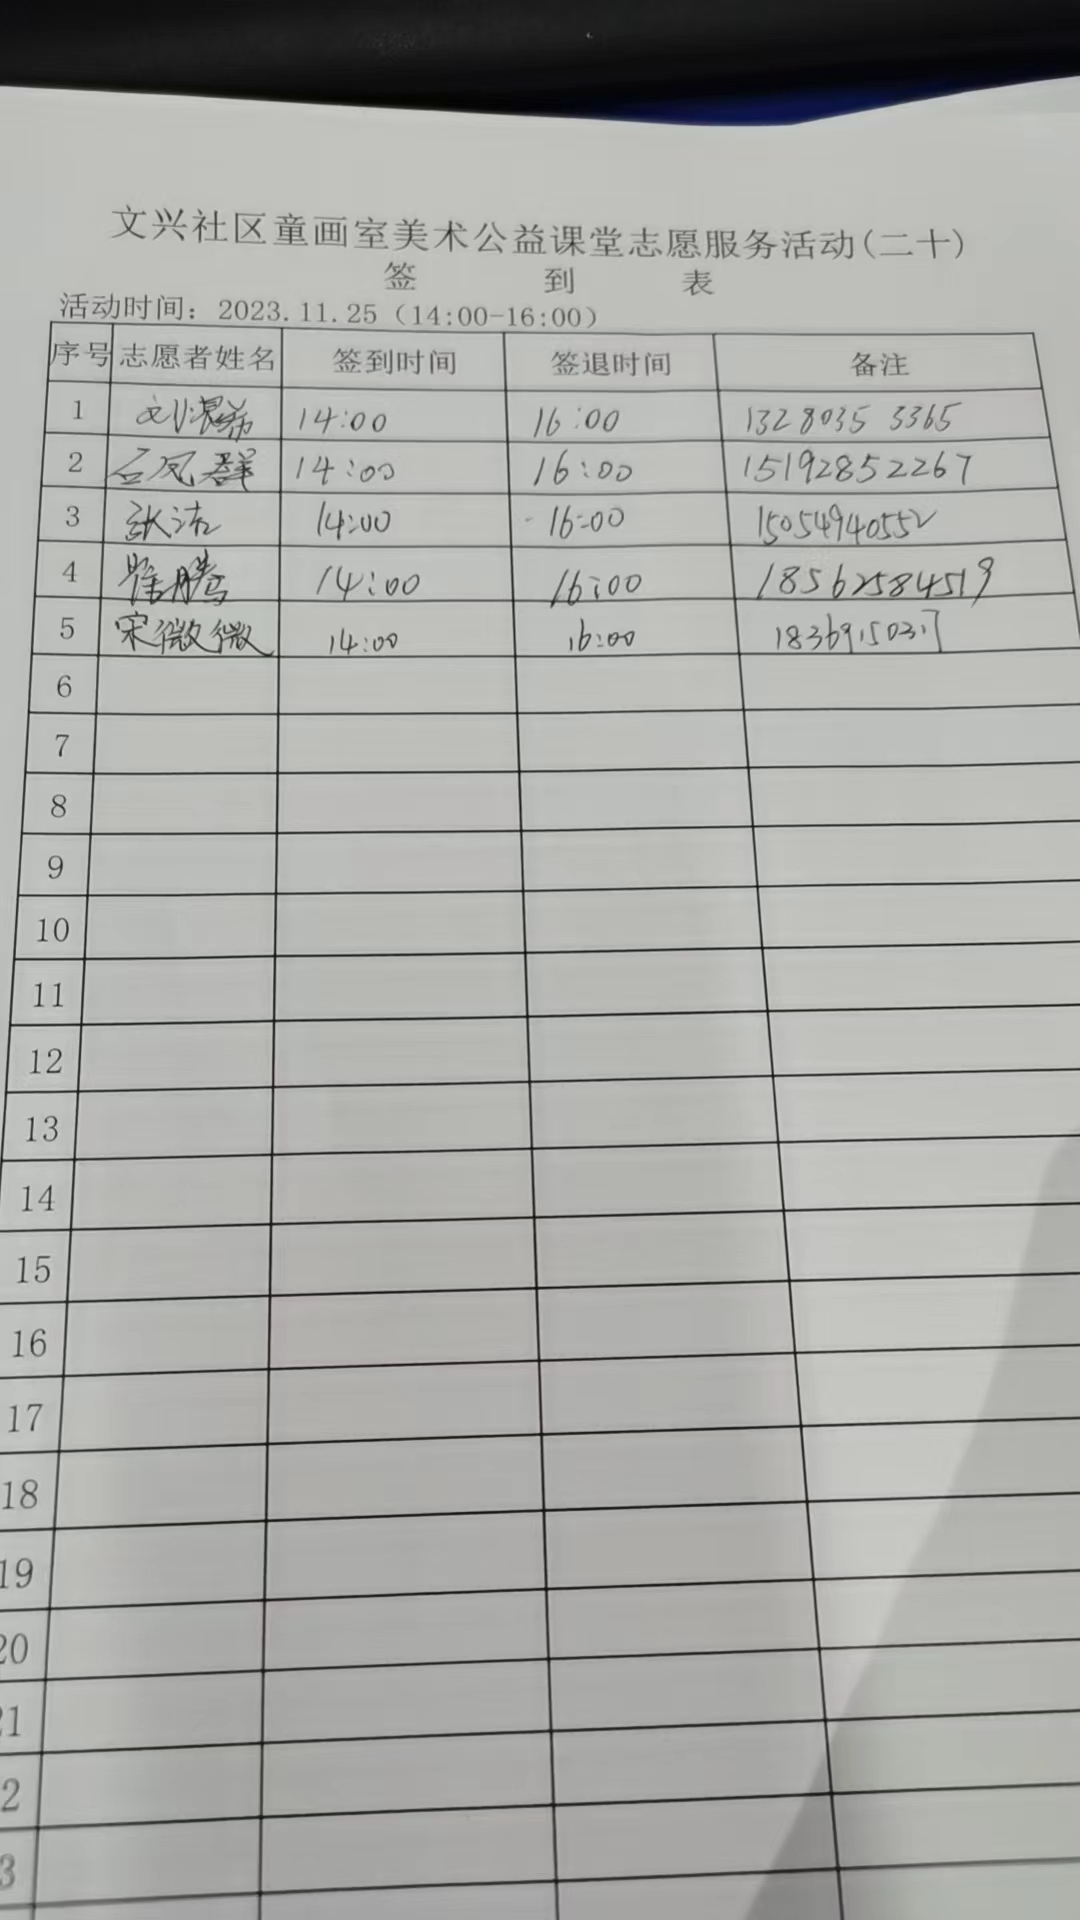 文兴社区童画室美术公益课堂志愿服务活动(二十)
签 到 表
活动时间：2023.11.25（14:00-16:00）
序号 志愿者姓名 签到时间 签退时间 备注
1 14:00 16:00 132 8035 3365
2 石凤群 14:00 16:00 15192852267
3 张洁 14:00 16:00 15054940552
4 14:00 16:00 18562584519
5 宋微微 14:00 16:00
6
7
8
9
10
11
12
13
14
15
16
17
18
19
20
21
2
3